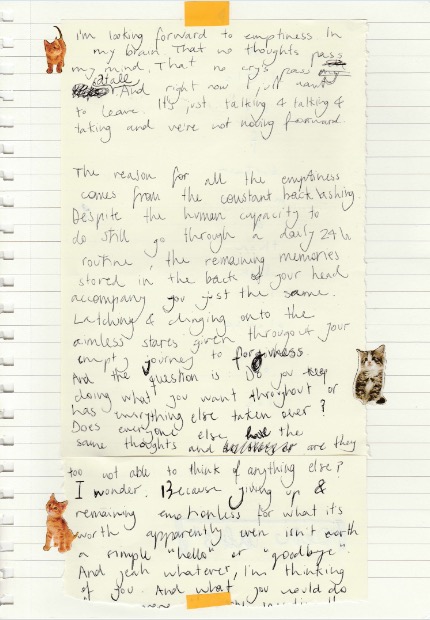 I'm looking forward to emptiness. In
my brain. That no thoughts pass
my mind. That no crys pass my
atall
And right now I just want
to leave. It's just talking & talking &
talking and we're not moving forward.
The reason for all the emptiness
comes from the constant backlashing.
Despite the human capacity to
do still go through a daily 24h
routine, the remaining memories
stored in the back of your head
accompany you just the same.
Latching & clinging onto the
aimless stares given througout your
empty journey to forgivness
And the question is. Do you keep
doing what you want throughout or
has everything else taken over?
Does everyone else have the
same thoughts and are they
too not able to think of anything else?
I wonder. Because giving up &
remaining emotionless for what its
worth apparently even isn't worth
a simple "hello" or "goodbye"
And yeah whatever, I'm thinking
of you. And what you would do